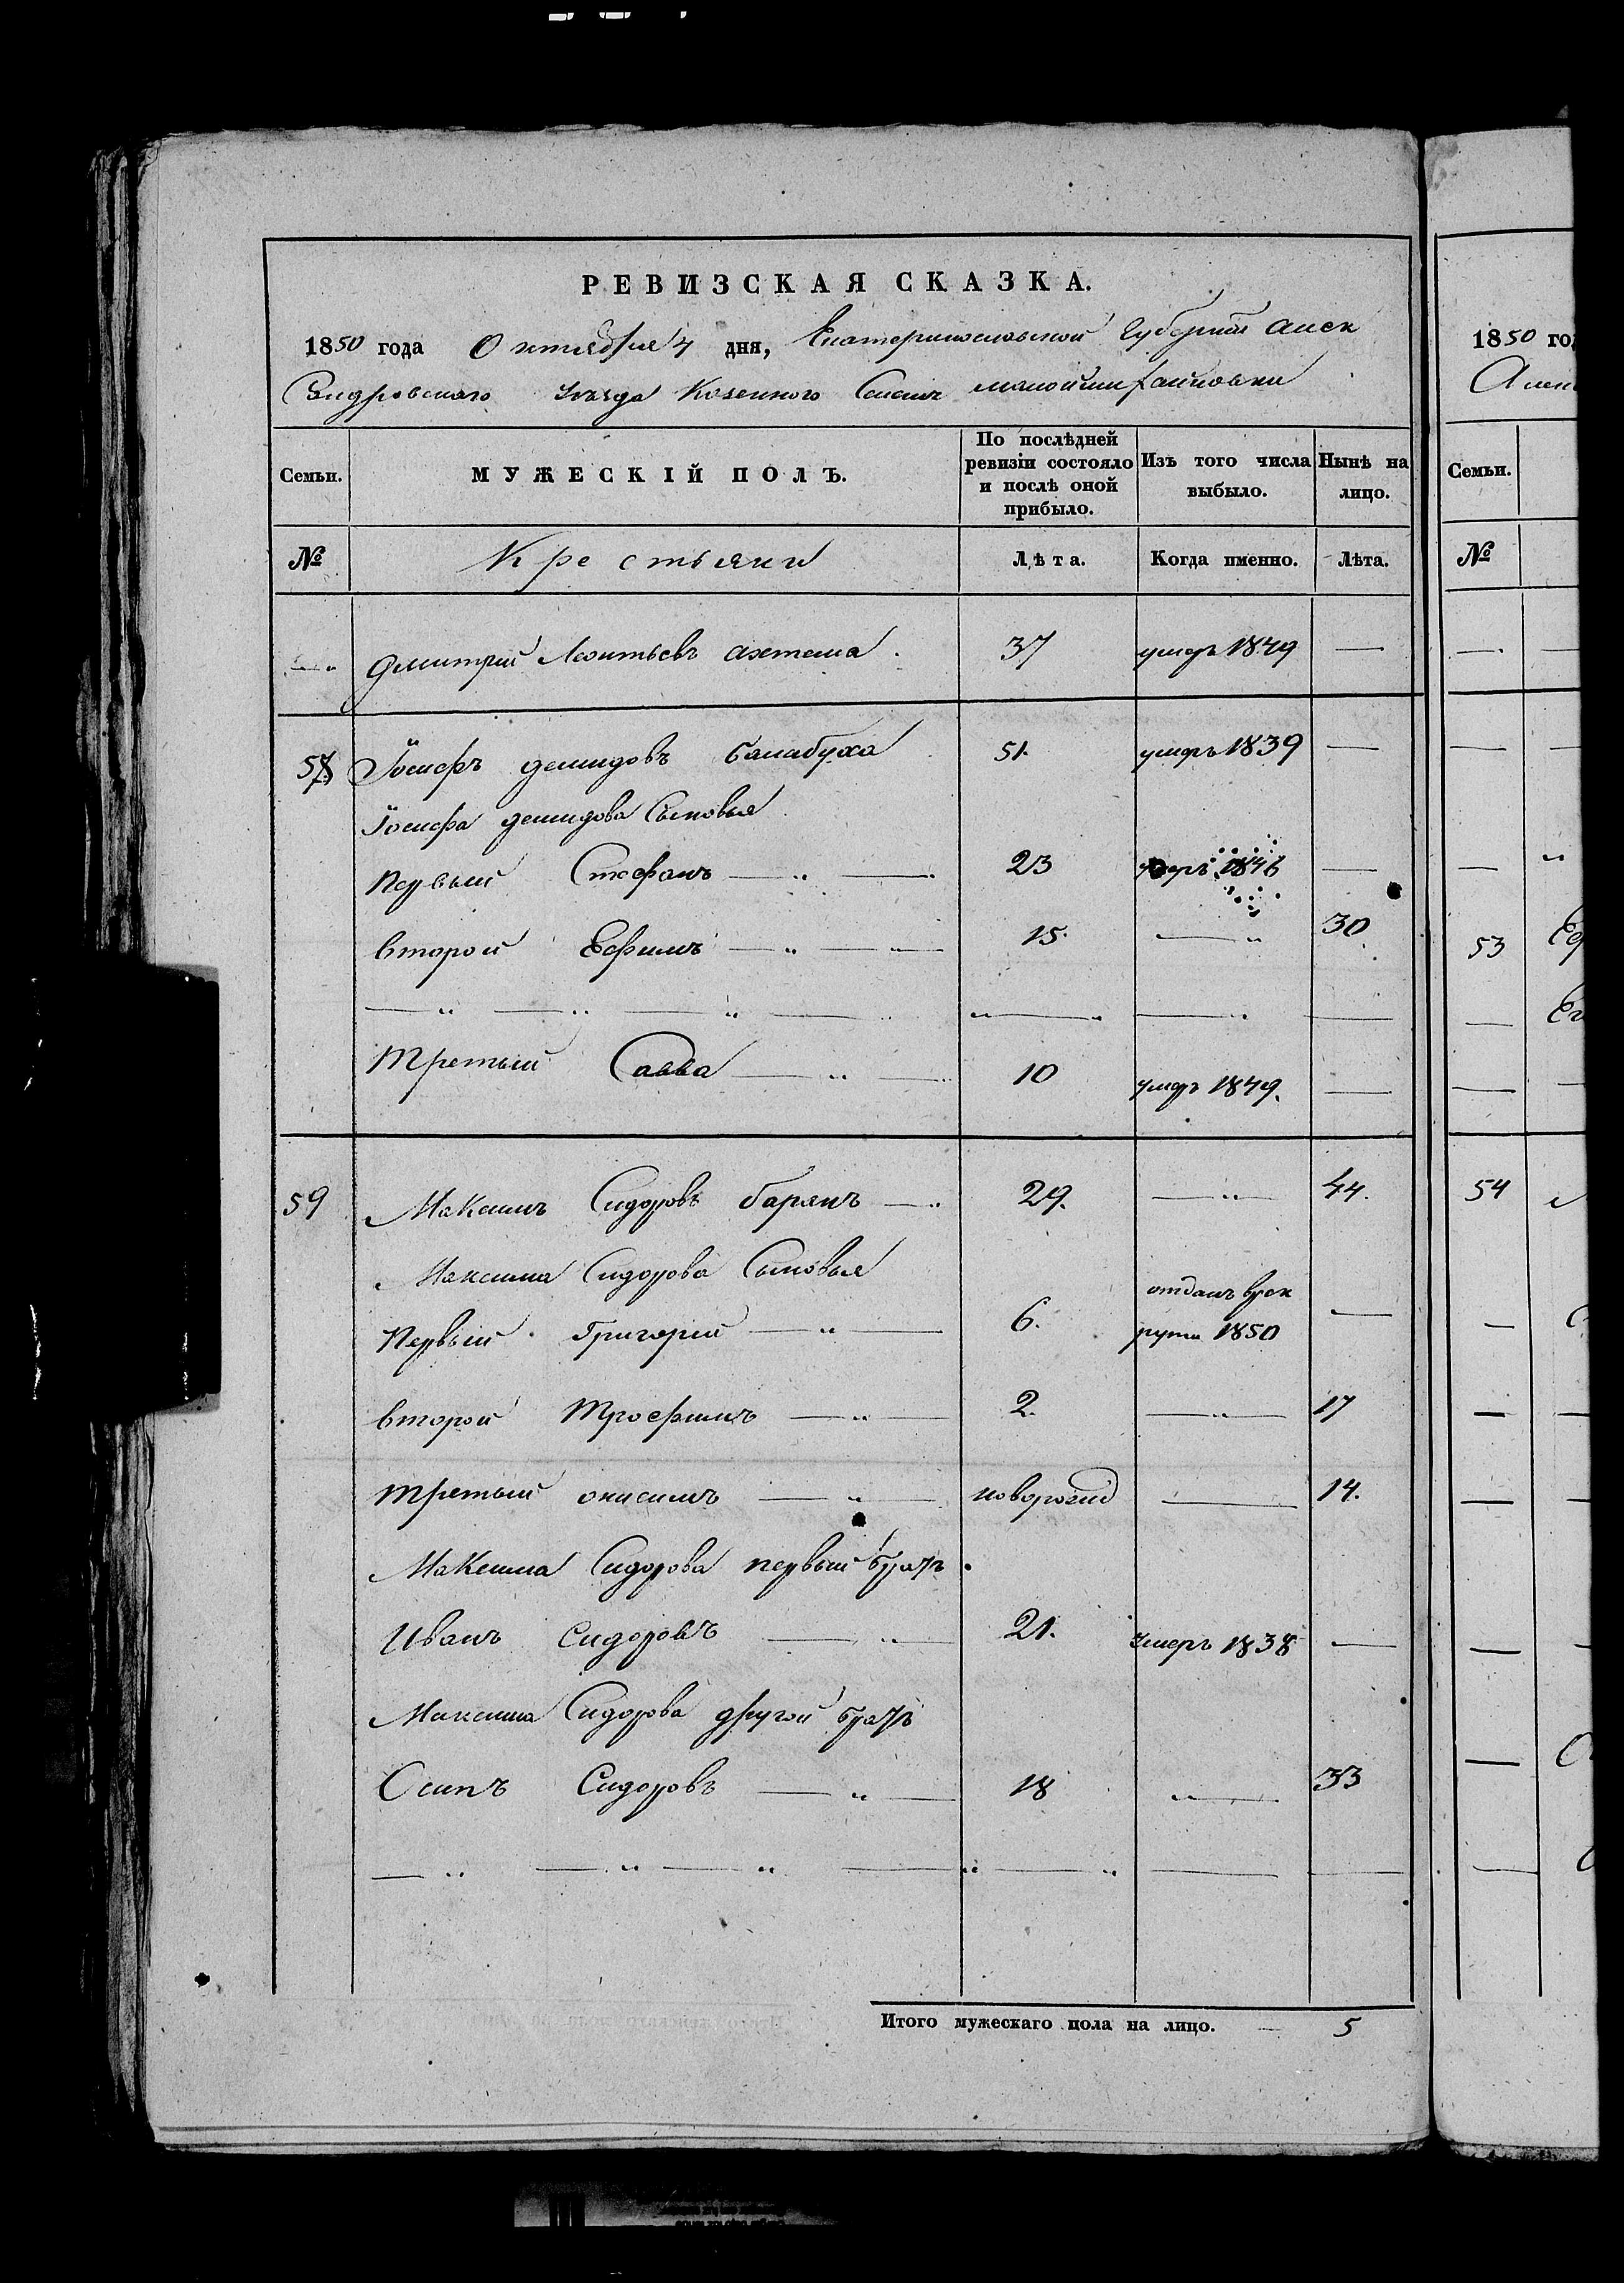 РЕВИЗСКАЯ СКАЗКА.
1850 года Октября 4 дня, Екатеринославской Губернии Алек
Сандровского Уезда Козенного Селения
Семьи. МУЖЕСКІЙ ПОЛЪ. По послѣдней ревизіи состояло и послѣ оной прибыло. Изъ того числа выбыло. Нынѣ на лицо.
№ Крестьяни Лѣта. Когда именно. Лѣта.
Дмитрий Леонтьевъ 37 умеръ 1849 —
58 Іосифъ Демидовъ Балабуха 51. умеръ 1839 —
Іосифа Демидова Сыновья
Первый Стефанъ — " — 23 умеръ 1846 —
второй Ефимъ — " — 15. — " 30
Третьий Савва — " — 10 умеръ 1849. —
59 Максимъ Сидоровъ баранъ — " 29. — " — 44.
Максима Сидорова Сыновья
Первый Григорий — " — 6. отданъ врек
руты 1850 —
второй Трофимъ — " — 2. — " — 17
третьий онисимъ — " — новорожд — 14.
Максима Сидорова первый братъ
Иванъ Сидоровъ — " — 21. Умеръ 1838 —
Максима Сидорова другой братъ
Осипъ Сидоровъ — " — 18 " — 33
Итого мужескаго пола на лицо. — 5
1850 го
Алек
Семьи.
№
53 Еф
54